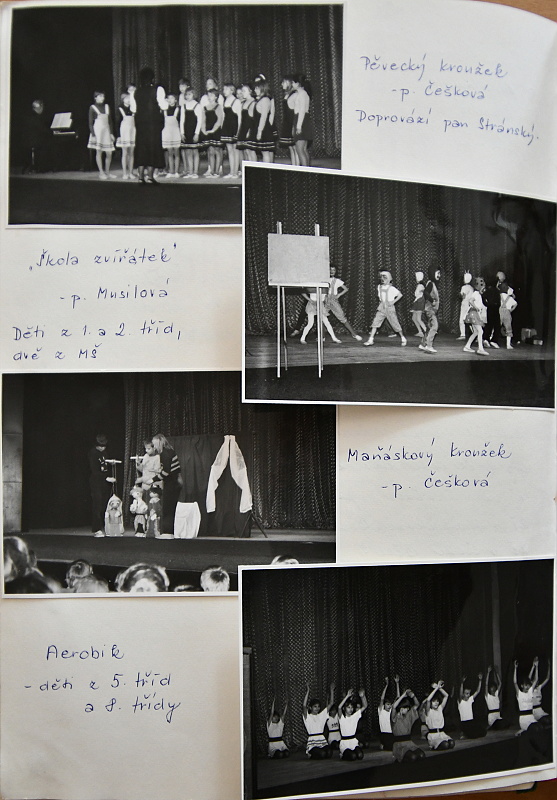 Pěvecký kroužek
- p. Češková
Doprovází pan Stránský.
„Škola zvířátek"
- p. Musilová
Děti z 1. a 2. tříd,
dvě z MŠ
Maňáskový kroužek
- p. Češková
Aerobik
- děti z 5. tříd
a 8. třídy